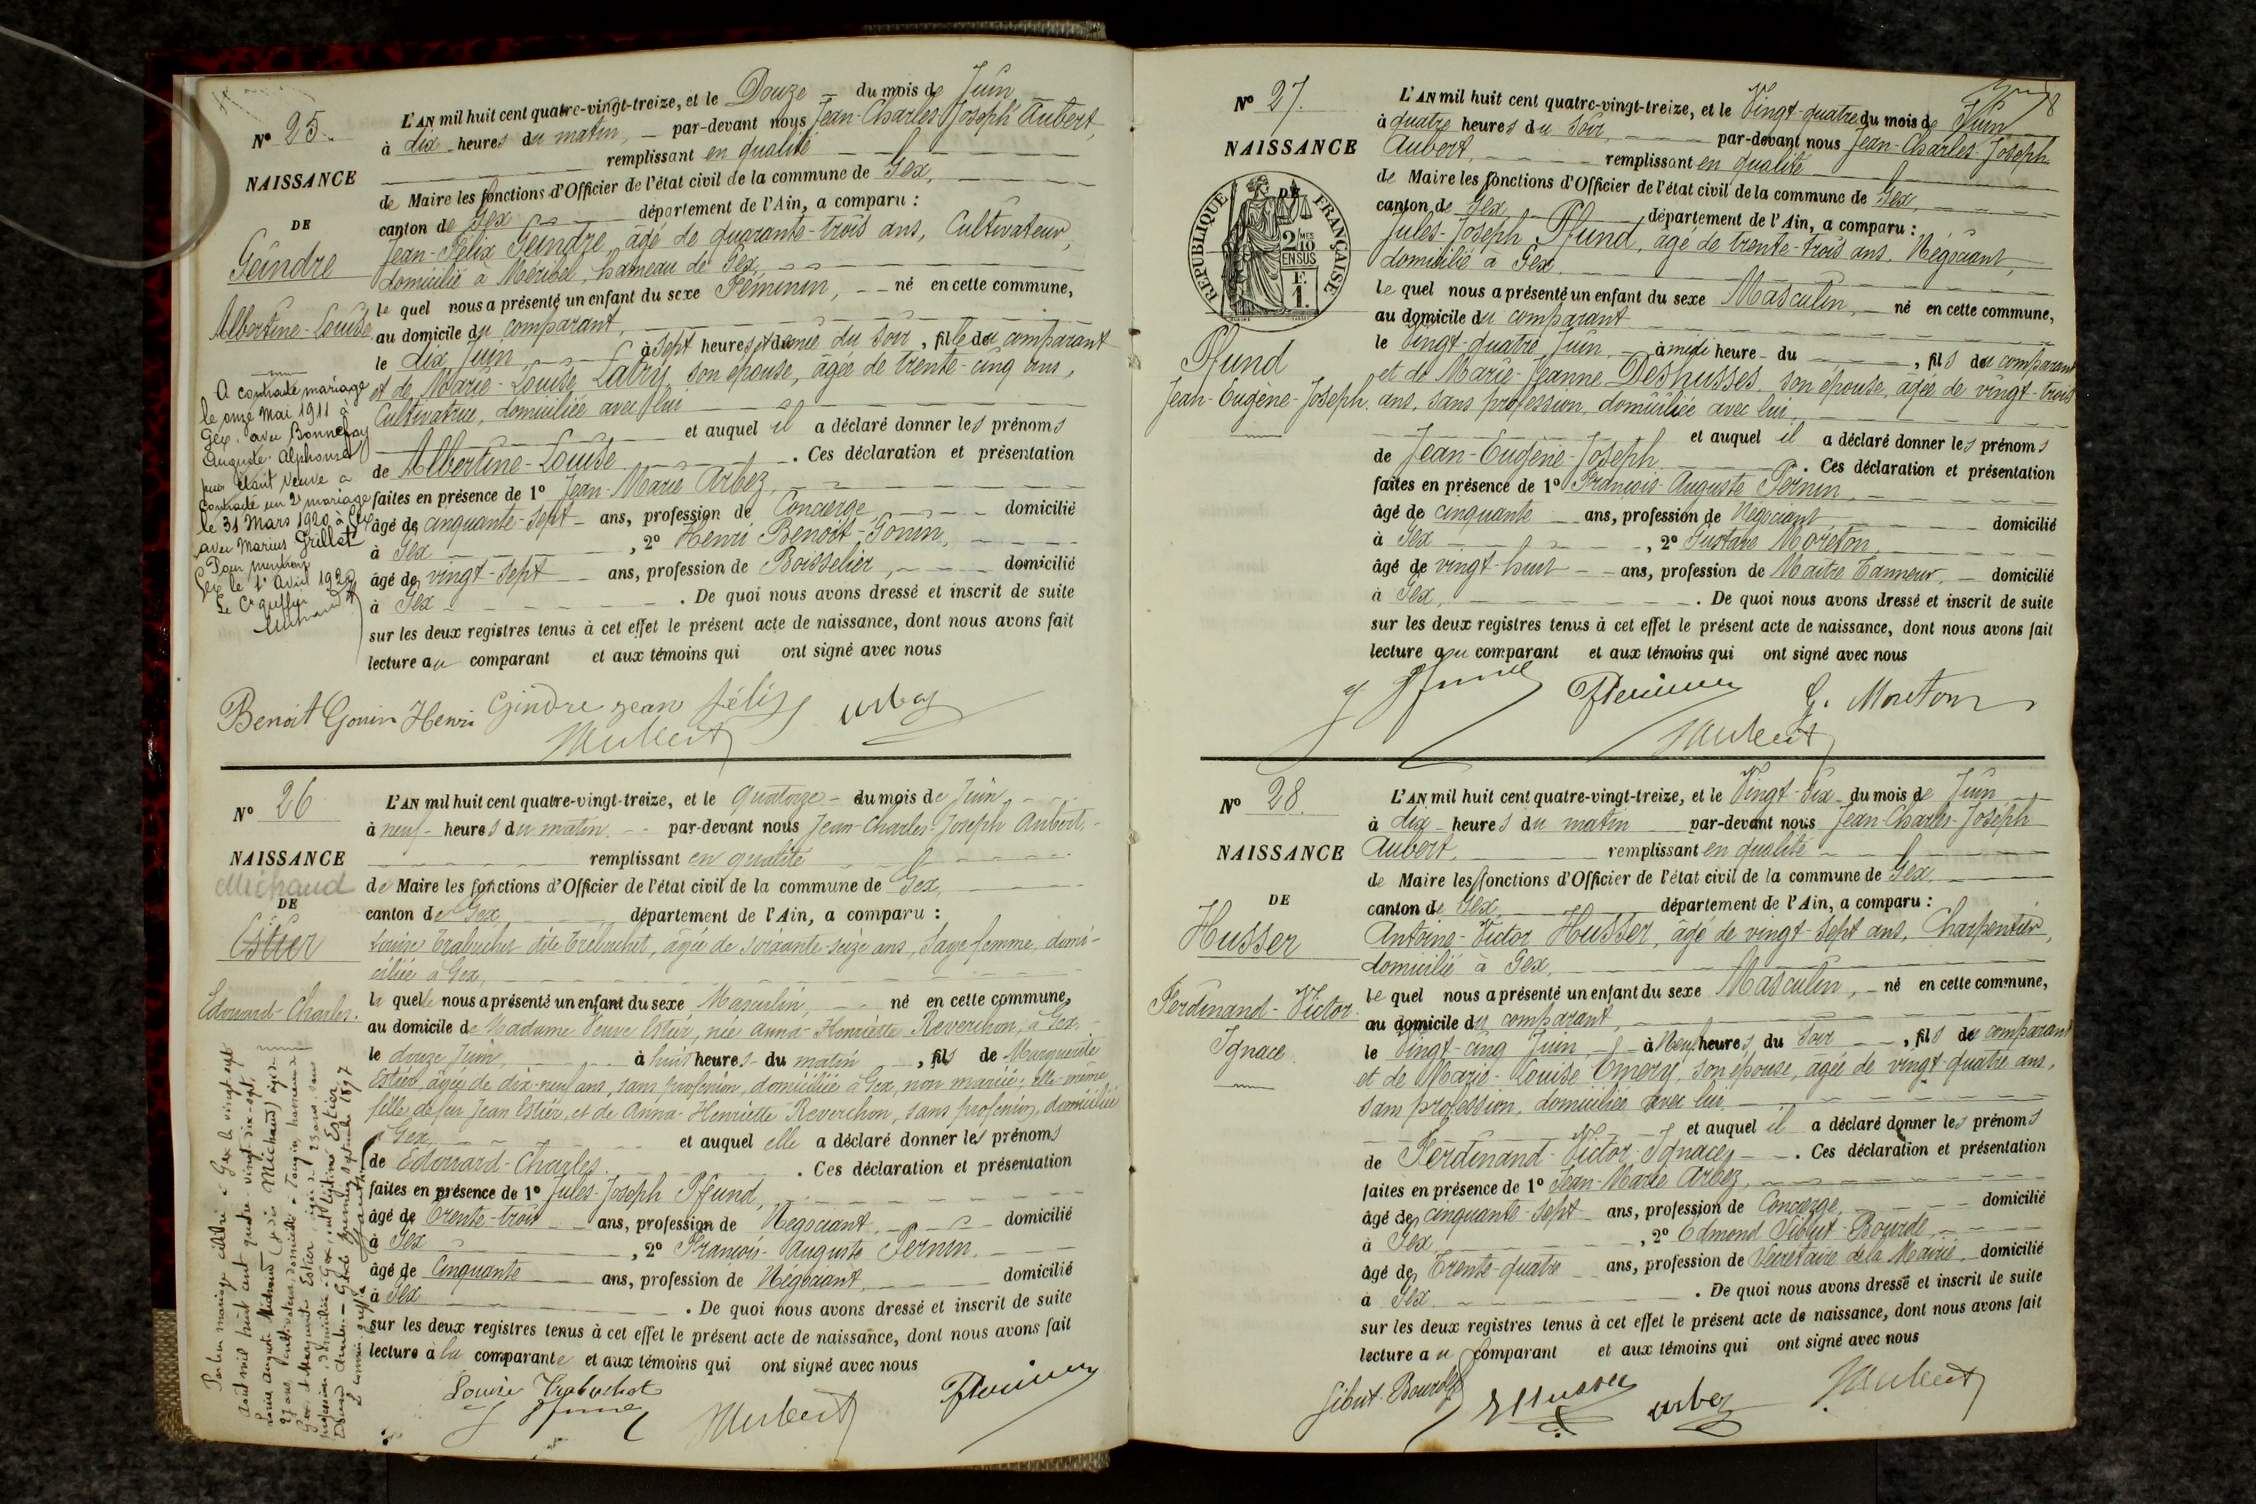 N° 25
NAISSANCE
DE
Geindre
Albertine-Louise
A contracté mariage
le onze Mai 1911 à
Gex, avec Bonnefoy
Auguste Alphonse
puis étant veuve a
contracté un 2e mariage
le 31 Mars 1920 à Gex
avec Marius Grillet
Pour mention
Gex le 1er Avril 1920
Le Cis greffier
L'AN mil huit cent quatre-vingt-treize, et le Douze du mois de Juin
à dix heures du matin, par-devant nous Jean-Charles-Joseph Aubert,
remplissant en qualité
de Maire les fonctions d'Officier de l'état civil de la commune de Gex,
canton de Gex département de l'Ain, a comparu :
Jean-Félix Geindre, âgé de quarante-trois ans, Cultivateur,
domicilié à Méribel, hameau de Gex,
le quel nous a présenté un enfant du sexe Féminin, né en cette commune,
au domicile du comparant,
le dix Juin, à sept heures et demie du soir, fille du comparant
et de Marie-Louise Lavry son épouse, âgée de trente-cinq ans,
Cultivatrice, domiciliée avec lui
et auquel il a déclaré donner les prénoms
de Albertine-Louise. Ces déclaration et présentation
faites en présence de 1° Jean-Marie Arbez,
âgé de cinquante-sept ans, profession de Concierge domicilié
à Gex, 2° Henri Benoit-Gonin,
âgé de vingt-sept ans, profession de Boisselier, domicilié
à Gex. De quoi nous avons dressé et inscrit de suite
sur les deux registres tenus à cet effet le présent acte de naissance, dont nous avons fait
lecture au comparant et aux témoins qui ont signé avec nous
Benoit Gonin Henri Gindre jean félix Arbez
JAubert
N° 26
NAISSANCE
Michaud
DE
Estier
Edouard-Charles.
Par leur mariage célébré à Gex le vingt sept
Août mil huit cent quatre-vingt-dix-sept,
Louis August Michaud (je dis Michaud) âgé de
27 ans, cultivateur, domicilié à Tougin, hameau de
Gex et Marguerite Estier âgée de 23 ans, sans
profession, domiciliée à Gex, ont légitimé Estier
Edouard Charles. - Gex le premier septembre 1897
Le commis greffier
L'AN mil huit cent quatre-vingt-treize, et le quatorze du mois de Juin
à neuf heures du matin par-devant nous Jean-Charles-Joseph Aubert,
remplissant en qualité
de Maire les fonctions d'Officier de l'état civil de la commune de Gex,
canton de Gex département de l'Ain, a comparu :
Louise Trabuchet dite Trébuchet, âgée de soixante-seize ans, Sage femme, domi-
ciliée à Gex,
la quelle nous a présenté un enfant du sexe Masculin, né en cette commune,
au domicile de Madame Veuve Estier, née Anna-Henriette Reverchon, à Gex,
le douze Juin, à huit heures du matin, fils de Marguerite
Estier, âgée de dix-neuf ans, sans profession, domiciliée à Gex, non mariée; elle-même
fille de feu Jean Estier, et de Anna-Henriette Reverchon, sans profession, domiciliée
à Gex, et auquel elle a déclaré donner les prénoms
de Edouard-Charles. Ces déclaration et présentation
faites en présence de 1° Jules-Joseph Pfund,
âgé de trente-trois ans, profession de Négociant domicilié
à Gex, 2° François-Auguste Pernin,
âgé de Cinquante ans, profession de Négociant, domicilié
à Gex. De quoi nous avons dressé et inscrit de suite
sur les deux registres tenus à cet effet le présent acte de naissance, dont nous avons fait
lecture à la comparante et aux témoins qui ont signé avec nous
Louise Trabuchet
J Pfund JAubert FPernin
8
N° 27.
NAISSANCE
DE
RÉPUBLIQUE FRANÇAISE
2/10 MES
EN SUS
F.
1.
Pfund
Jean-Eugène-Joseph.
L'AN mil huit cent quatre-vingt-treize, et le Vingt-quatre du mois de Juin
à quatre heures du soir, par-devant nous Jean-Charles-Joseph
Aubert, remplissant en qualité
de Maire les fonctions d'Officier de l'état civil de la commune de Gex,
canton de Gex département de l'Ain, a comparu :
Jules-Joseph Pfund, âgé de trente-trois ans, Négociant,
domicilié à Gex
le quel nous a présenté un enfant du sexe Masculin, né en cette commune,
au domicile du comparant
le Vingt-quatre Juin, à midi heure du, fils du comparant
et de Marie-Jeanne Deshusses son épouse, âgée de vingt-trois
ans, sans profession, domiciliée avec lui,
et auquel il a déclaré donner les prénoms
de Jean-Eugène-Joseph. Ces déclaration et présentation
faites en présence de 1° François-Auguste Pernin,
âgé de cinquante ans, profession de Négociant domicilié
à Gex, 2° Gustave Moréton,
âgé de vingt-huit ans, profession de Maître Tanneur, domicilié
à Gex,. De quoi nous avons dressé et inscrit de suite
sur les deux registres tenus à cet effet le présent acte de naissance, dont nous avons fait
lecture au comparant et aux témoins qui ont signé avec nous
J Pfund FPernin G. Moreton
JAubert
N° 28.
NAISSANCE
DE
Husser
Ferdinand-Victor
Ignace.
L'AN mil huit cent quatre-vingt-treize, et le Vingt-six du mois de Juin
à dix heures du matin par-devant nous Jean-Charles-Joseph
Aubert, remplissant en qualité
de Maire les fonctions d'Officier de l'état civil de la commune de Gex,
canton de Gex, département de l'Ain, a comparu :
Antoine-Victor Husser, âgé de vingt-sept ans, Charpentier,
domicilié à Gex,
le quel nous a présenté un enfant du sexe Masculin, né en cette commune,
au domicile du comparant,
le Vingt-cinq Juin, à Neuf heures du soir, fils du comparant
et de Marie-Louise Emery, son épouse, âgée de vingt-quatre ans,
sans profession, domiciliée avec lui,
et auquel il a déclaré donner les prénoms
de Ferdinand-Victor-Ignace. Ces déclaration et présentation
faites en présence de 1° Jean-Marie Arbez,
âgé de cinquante-sept ans, profession de Concierge, domicilié
à Gex, 2° Edmond Sibut-Bourde,
âgé de Trente-quatre ans, profession de Secrétaire de la Mairie, domicilié
à Gex. De quoi nous avons dressé et inscrit de suite
sur les deux registres tenus à cet effet le présent acte de naissance, dont nous avons fait
lecture au comparant et aux témoins qui ont signé avec nous
Sibut-Bourde Husser Arbez JAubert